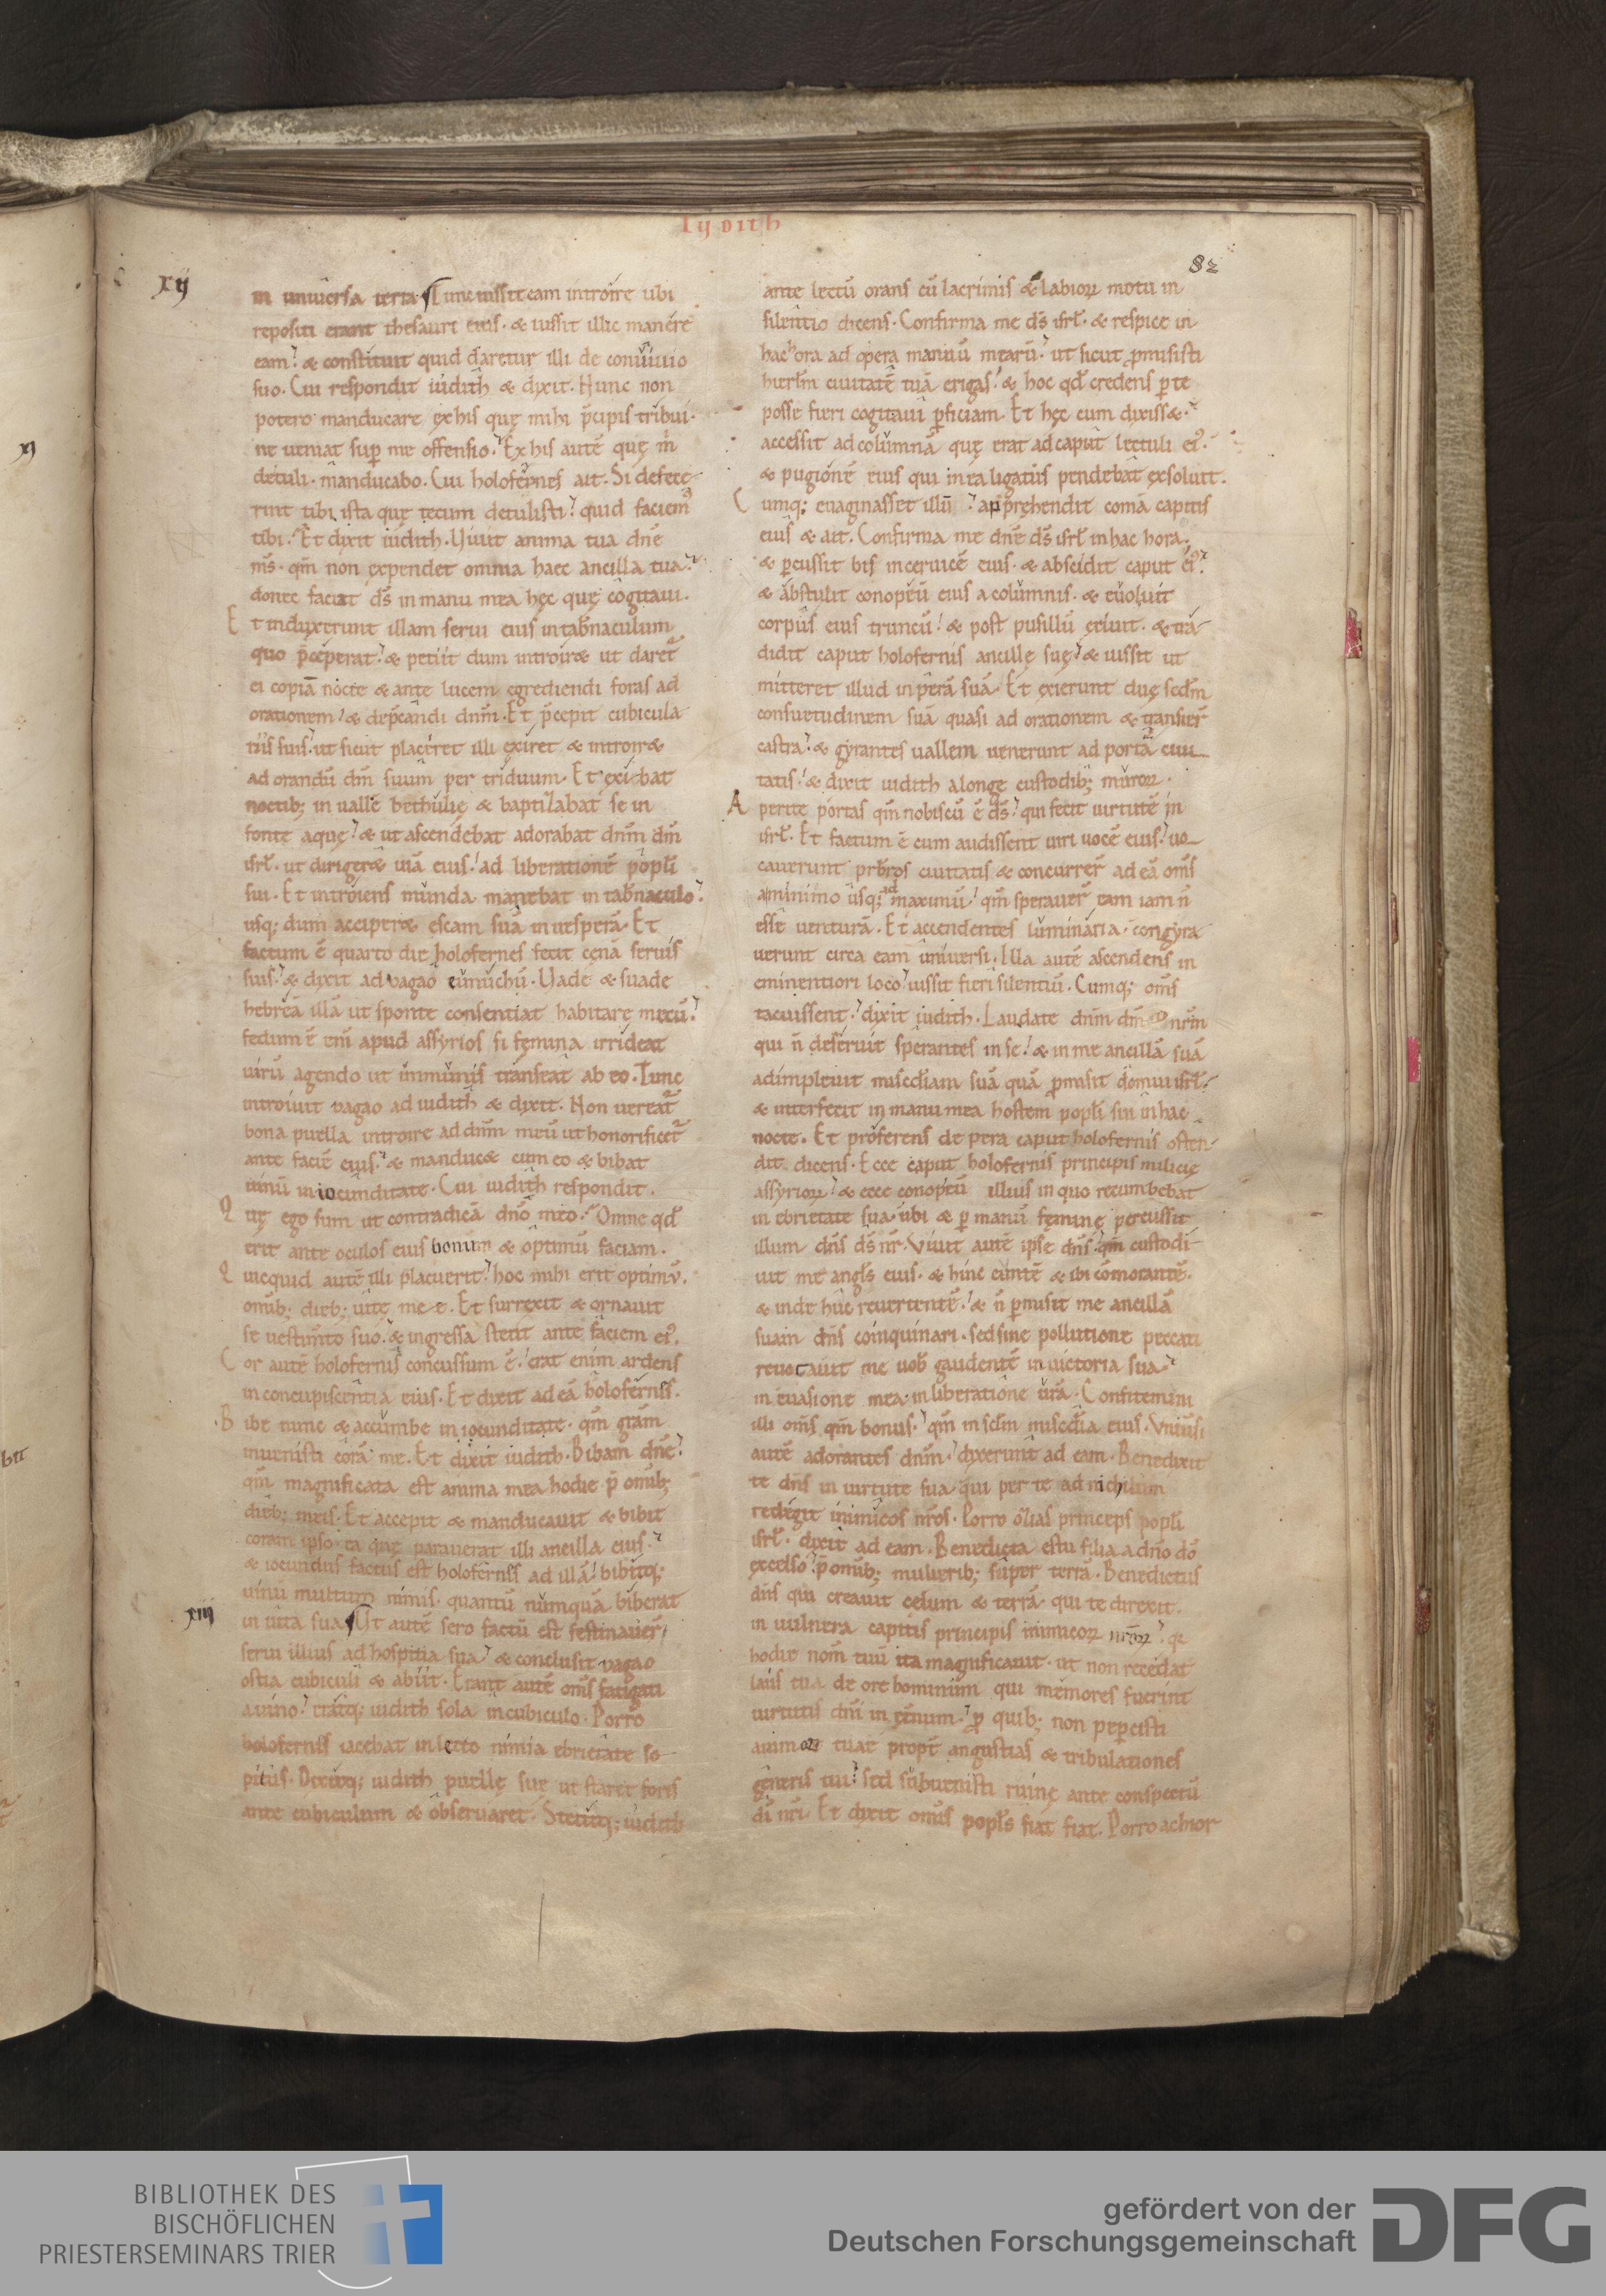 IUDITH
82
xij
in uniuersa terra. Tunc iussit eam introire ubi
repositi erant thesauri eius· & iussit illic manere
eam· & constituit quid daretur illi de conuiuio
suo. Cui respondit iudith & dixit. Nunc non
potero manducare ex his quę mihi p̄cipis tribui·
ne ueniat sup me offensio. Ex his autē quę m̄
detuli· manducabo. Cui holofernes ait. Si defece
rint tibi ista quę tecum detulisti· quid faciem᾿
tibi. Et dixit iudith. Uiuit anima tua dn̄e
m̄s· qm̄ non expendet omnia haec ancilla tua·
donec faciat d̄s in manu mea hęc quę cogitaui.
Et induxerunt illam serui eius in tab̄naculum
quo p̄ceperat· & petiit dum introir& ut daret᾿
ei copiā nocte & ante lucem egrediendi foras ad
orationem· & dep̄candi dnm̄. Et p̄cepit cubicula
riis suis· ut sicut placeret illi exiret & introir&
ad orandū dm̄ suum per triduum. Et exibat
noctib; in uallē bethulię & baptizabat se in
fonte aquę· & ut ascendebat adorabat dnm̄ dm̄
isrl̄· ut diriger& uiā eius· ad liberationē popl̄i
sui. Et introiens munda manebat in tab̄naculo·
usq; dum acciper& escam suā in uesperā. Et
factum ē quarto die holofernes fecit cenā seruis
suis· & dixit ad uagao eunuchū. Uade & suade
hebreā illā ut sponte consentiat habitare mecū·
fedum ē eni apud assyrios si femina irrideat
uirū agendo ut immunis transeat ab eo. Tunc
introiuit uagao ad iudith & dixit. Non uereat᾿
bona puella introire ad dnm̄ meū ut honorificet᾿
ante faciē eius· & manduc& cum eo & bibat
uinū in iocunditate. Cui iudith respondit.
Quę ego sum ut contradicā dn̄o meo. Omne qd̄
erit ante oculos eius bonum & optimū faciam.
Quicquid autē illi placuerit· hoc mihi erit optimū.
om̄ib; dieb; uitę meę. Et surrexit & ornauit
se uestimn̄to suo· & ingressa stetit ante faciem ei᾿.
Cor autē holofernis concussum ē· erat enim ardens
in concupiscentia eius. Et dixit ad eā holofernis.
Bibe nunc & accumbe in iocunditate· qm̄ gr̄am
inuenisti corā me. Et dixit iudith. Bibam dn̄e·
qm̄ magnificata est anima mea hodie p̄ om̄ib;
dieb; meis. Et accepit & manducauit & bibit
coram ipso ea quę parauerat illi ancilla eius·
& iocundus factus est holofernis ad illā· bibitq;
uinū multum nimis· quantū numquā biberat
xiij
in uita sua. Ut autē sero factū est festinauer̄
serui illius ad hospitia sua· & conclusit uagao
ostia cubiculi & abiit. Erant autē om̄s fatigati
a uino· eratq; iudith sola in cubiculo. Porro
holofernis iacebat in lecto nimia ebrietate so
pitus. Dixitq; iudith puellę suę ut staret foris
ante cubiculum & obseruaret. Stetitq; iudith
ante lectū orans cū lacrimis & labiorꝝ motu in
silentio dicens. Confirma me d̄s isrl̄· & respice in
hac hora ad opera manuū mearū· ut sicut promisisti
hierlm̄ ciuitatē tuā erigas· & hoc qd̄ credens p te
posse fieri cogitaui pficiam. Et hęc cum dixiss&·
accessit ad columnā quę erat ad caput lectuli ei᾿·
& pugionē eius qui in ea ligatus pendebat exsoluit.
Cumq; euaginasset illū· apprehendit comā capitis
eius & ait. Confirma me dn̄e d̄s isrl̄ in hac hora·
& pcussit bis in ceruicē eius· & abscidit caput ei᾿·
& abstulit conopeū eius a columnis· & euoluit
corpus eius truncū· & post pusillū exiuit· & tra
didit caput holofernis ancillę suę· & iussit ut
mitteret illud in perā suā. Et exierunt duę scdm̄
consuetudinem suā quasi ad orationem & transier̄
castra· & gyrantes uallem uenerunt ad portā ciui
tatis· & dixit iudith a longe custodib; murorꝝ.
Aperite portas qm̄ nobiscū ē d̄s· qui fecit uirtutē in
isrl̄. Et factum ē cum audissent uiri uocē eius· uo
cauerunt prb̄ros ciuitatis & concurrer̄ ad eā om̄s
a minimo usq; ad maximū· qm̄ sperauer̄ eam iam n̄
esse uenturā. Et accendentes luminaria· congyra
uerunt circa eam uniuersi. Illa autē ascendens in
eminentiori loco· iussit fieri silentiū. Cumq; om̄s
tacuissent· dixit iudith. Laudate dnm̄ dm̄ nr̄m
qui n̄ deseruit sperantes in se· & in me ancillā suā
adimpleuit misedīam suā quā promisit domui isrl̄·
& interfecit in manu mea hostem popl̄i sui in hac
nocte. Et proferens de pera caput holofernis osten
dit dicens. Ecce caput holofernis principis milicię
assyriorꝝ· & ecce conopeū illius in quo recumbebat
in ebrietate sua· ubi & p manū feminę percussit
illum dn̄s d̄s nr̄. Viuit autē ipse dn̄s· qm̄ custodi
uit me angl̄s eius· & hinc euntē & ibi cōmorantē·
& inde huc reuertentē· & n̄ pmisit me ancillā
suam dn̄s coinquinari· sed sine pollutione peccati
reuocauit me uob̄ gaudentē in uictoria sua·
in euasione mea· in liberatione ur̄a. Confitemini
illi om̄s qm̄ bonus· qm̄ in sclm̄ misedīa eius. Vniusi
autē adorantes dnm̄· dixerunt ad eam. Benedixit
te dn̄s in uirtute sua· qui per te ad nichilum
redegit inimicos nr̄os. Porro ozias princeps popl̄i
isrl̄· dixit ad eam. Benedicta es tu filia a dn̄o dō
excelso· p̄ om̄ib; mulierib; super terrā. Benedictus
dn̄s qui creauit celum & terrā· qui te direxit
in uulnera capitis principis inimicorꝝ nr̄orꝝ· qr
hodie nom̄ tuū ita magnificauit· ut non recedat
laus tua de ore hominum qui memores fuerint
uirtutis dn̄i in ęt̄num· pro quib; non pepcisti
animę tuae propt̄ angustias & tribulationes
generis tui· sed subuenisti ruinę ante conspectū
dī nr̄i. Et dixit om̄is popl̄s fiat fiat. Porro achior
BIBLIOTHEK DES
BISCHÖFLICHEN
PRIESTERSEMINARS TRIER
gefördert von der
Deutschen Forschungsgemeinschaft
DFG